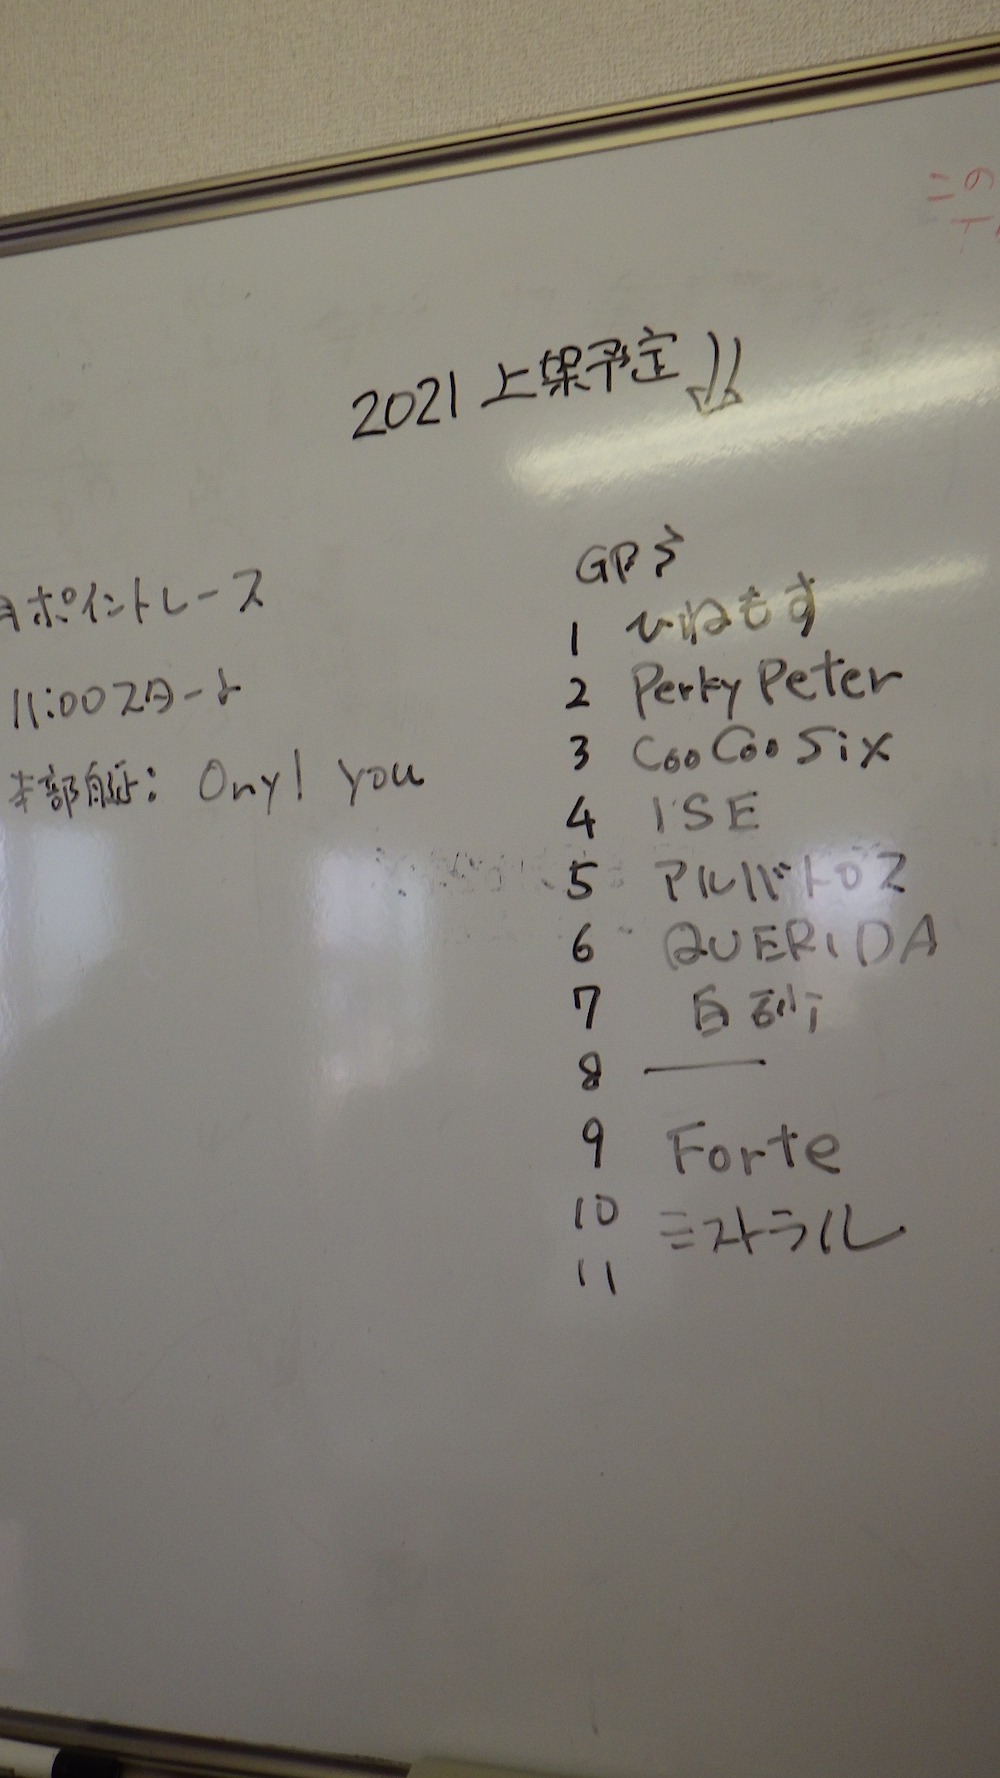 この
2021 上架予定
月ポイントレース
11:00スタート
本部艇: Onyl you
GP
1 ひねもす
2 Perky Peter
3 Coo Coo Six
4 ISE
5 アルバトロス
6 QUERIDA
7 白砂
8 ―
9 Forte
10 ミストラル
11